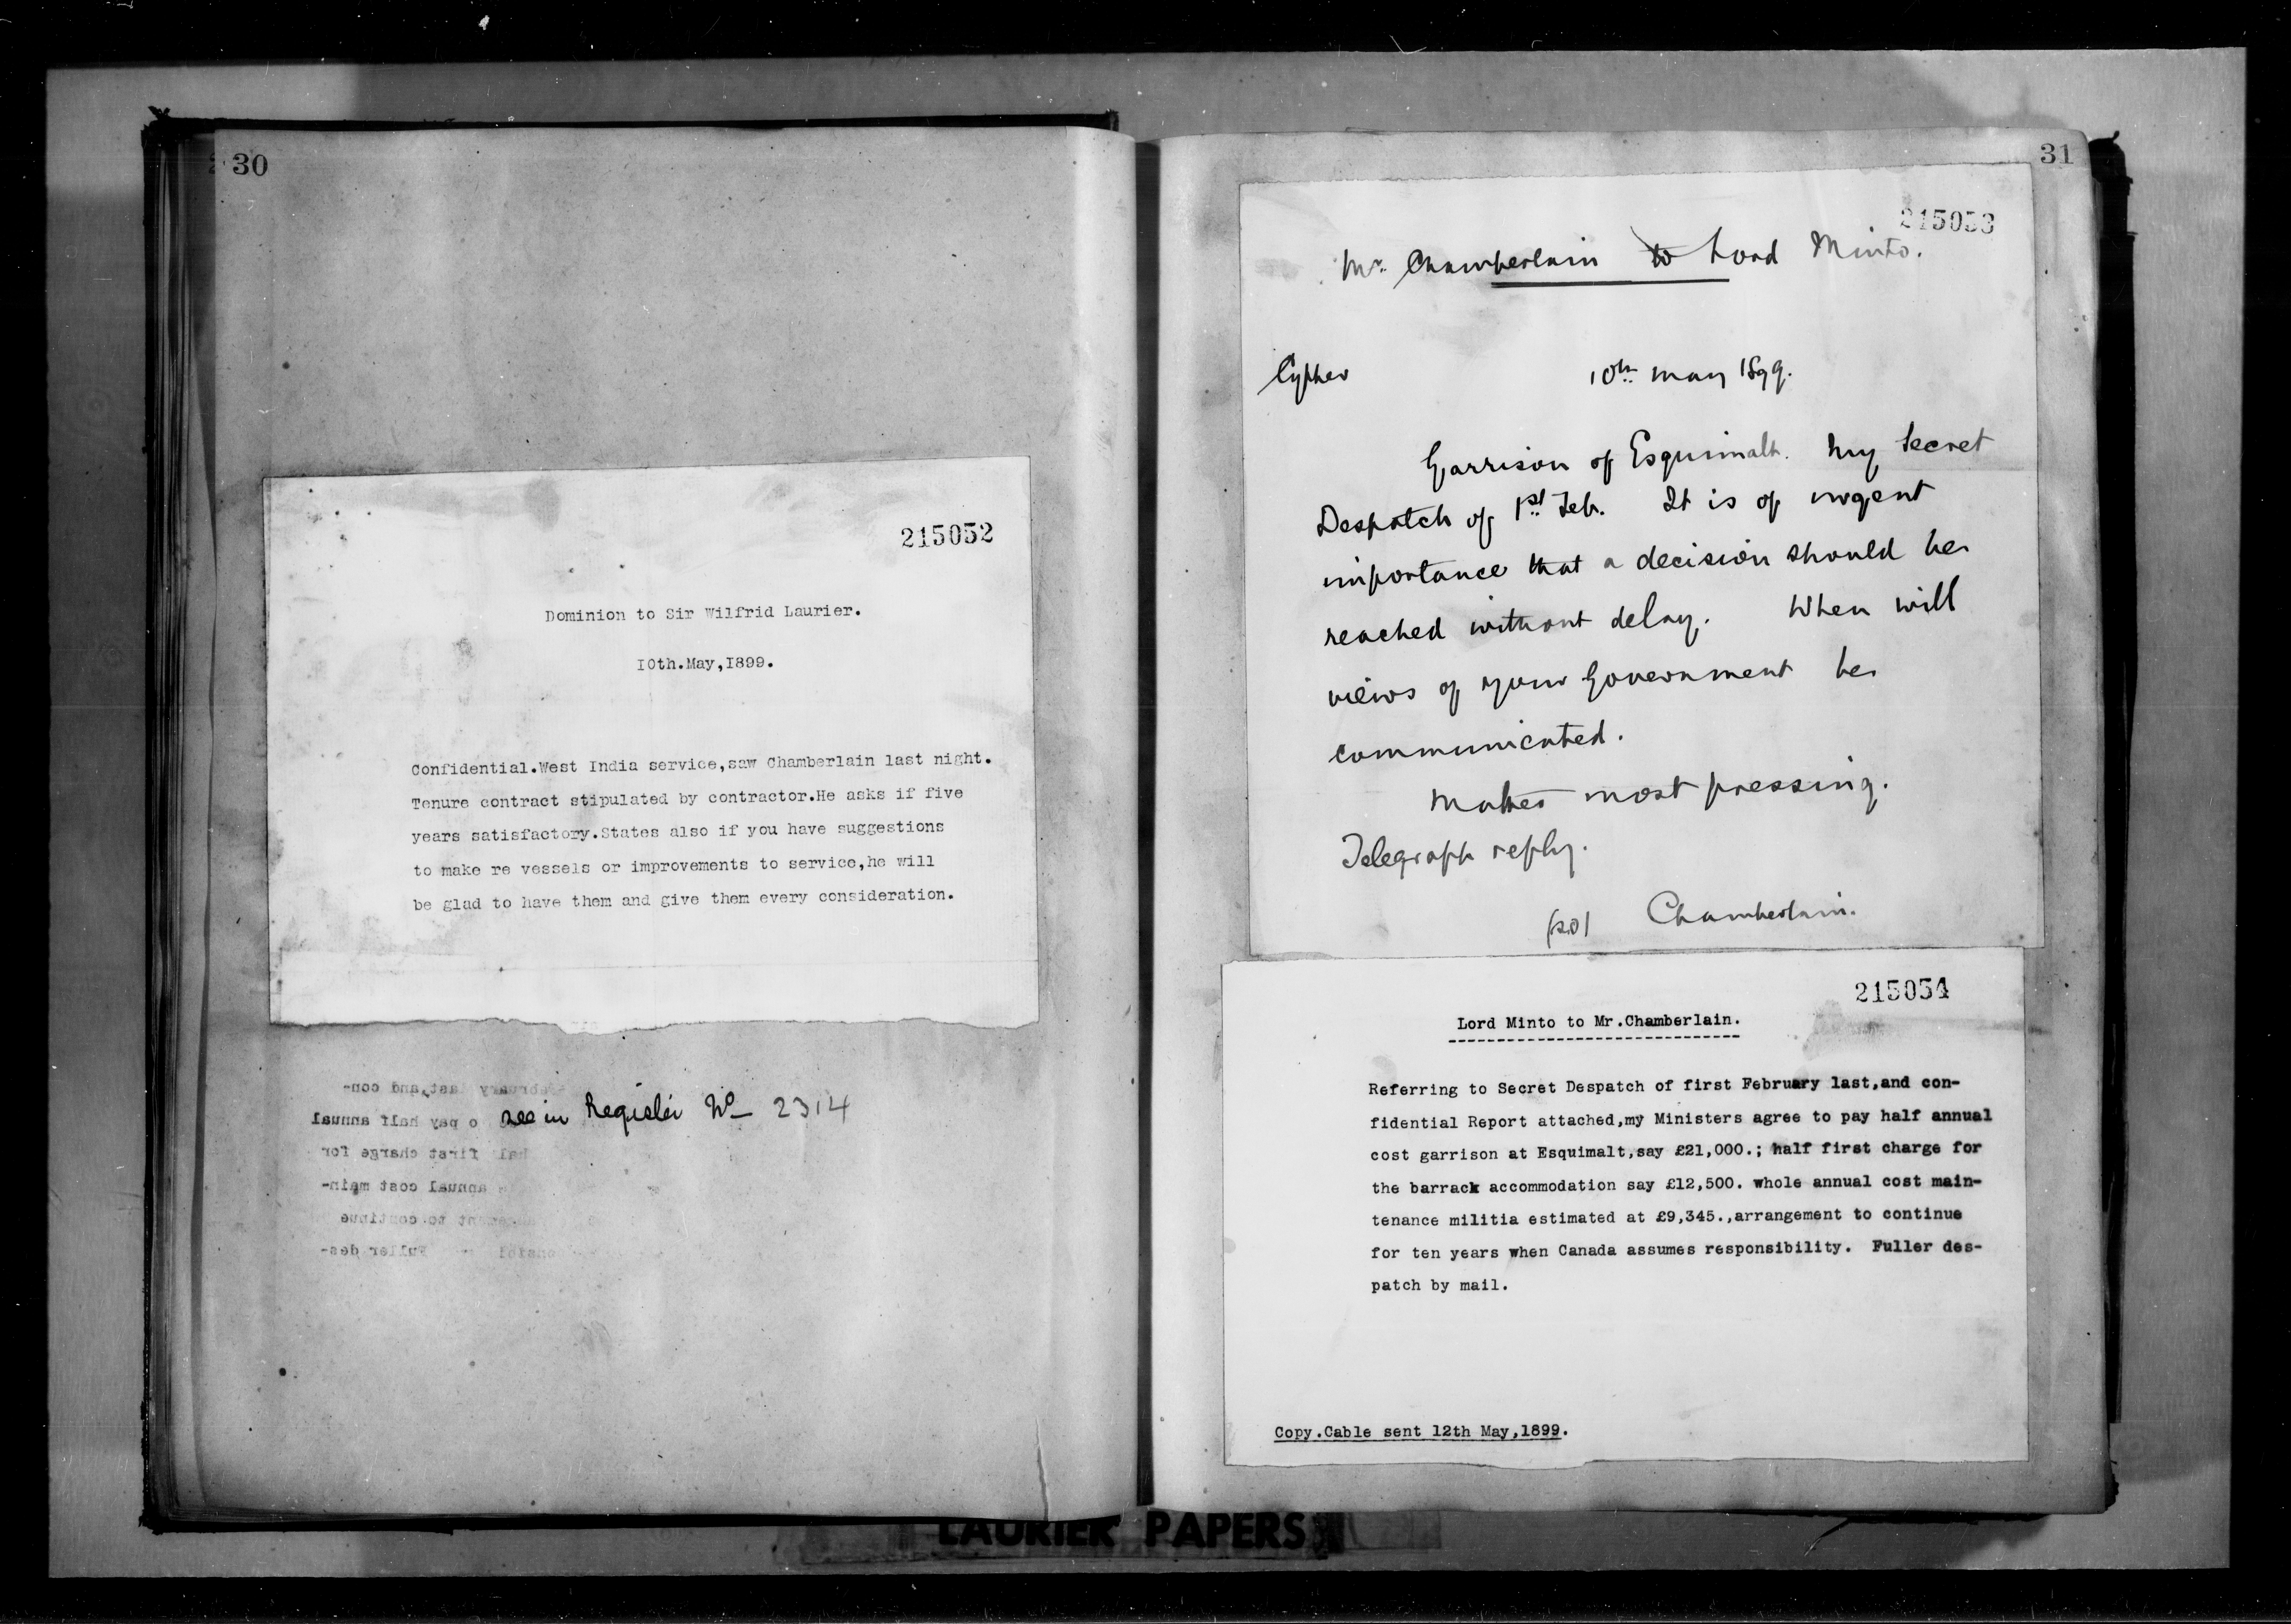 30
215052
Dominion to Sir Wilfrid Laurier.
10th.May,1899.
Confidential.West India service,saw Chamberlain last night.
Tenure contract stipulated by contractor.He asks if five
years satisfactory.States also if you have suggestions
to make re vessels or improvements to service,he will
be glad to have them and give them every consideration.
see in Register No 2314
31
215053
Mr. Chamberlain to Lord Minto.
Cypher 10th May 1899.
Garrison of Esquimalt. My Secret
Despatch of 1st Feb. It is of urgent
importance that a decision should be
reached without delay. When will
views of your Government be
communicated.
Matter most pressing.
Telegraph reply.
(sd) Chamberlain.
215054
Lord Minto to Mr.Chamberlain.
Referring to Secret Despatch of first February last,and con-
fidential Report attached,my Ministers agree to pay half annual
cost garrison at Esquimalt,say £21,000.; half first charge for
the barrack accommodation say £12,500. whole annual cost main-
tenance militia estimated at £9,345.,arrangement to continue
for ten years when Canada assumes responsibility. Fuller des-
patch by mail.
Copy.Cable sent 12th May,1899.
LAURIER PAPERS